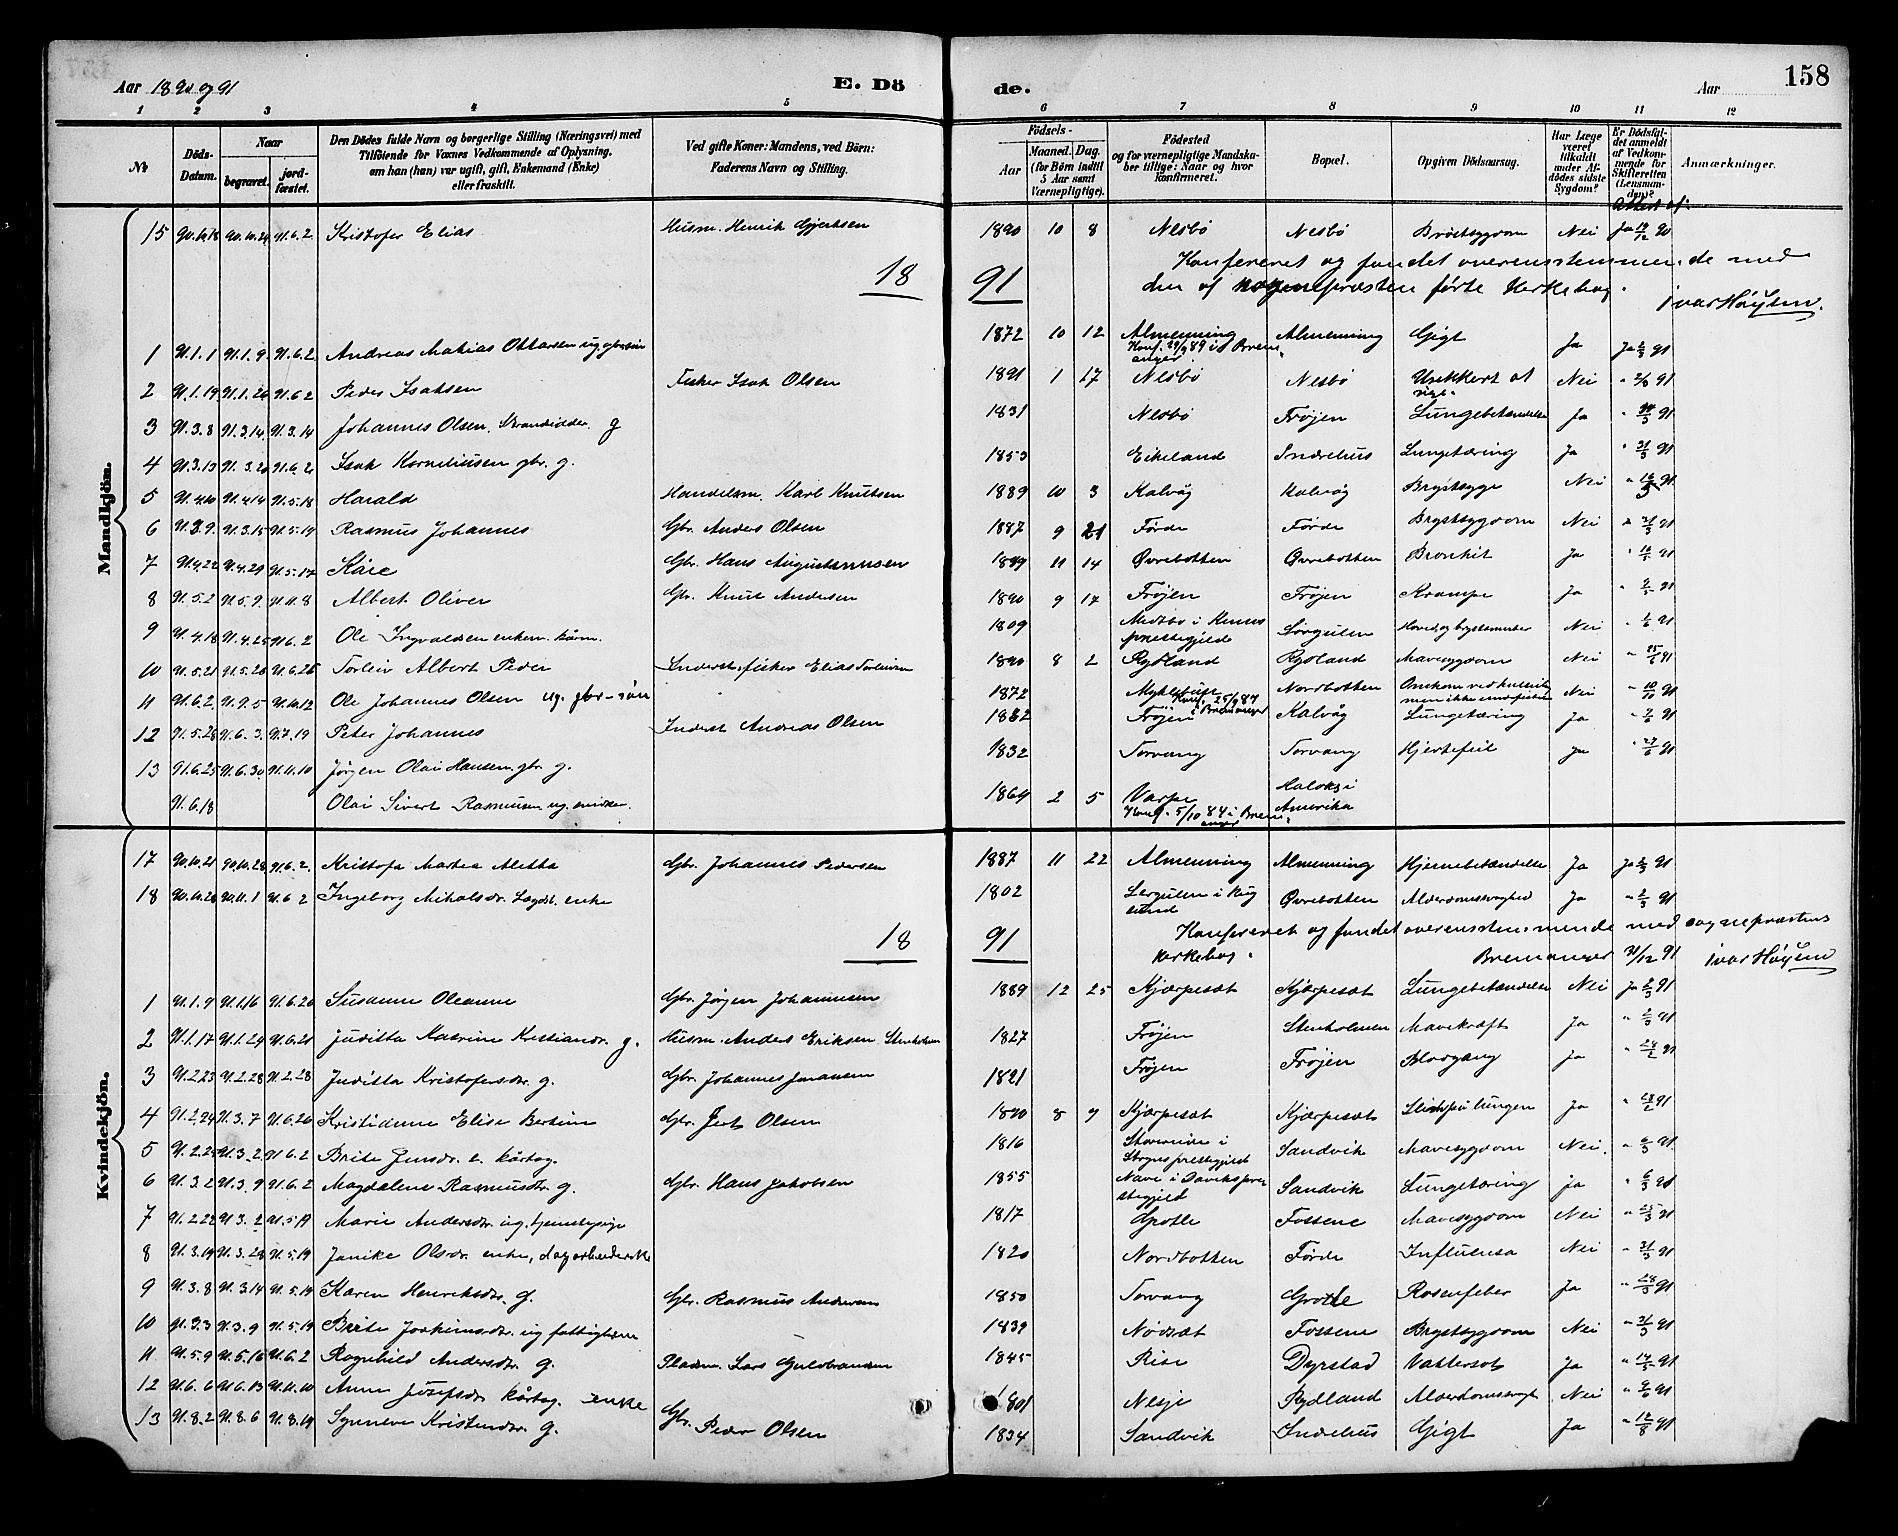 Aar 1890 og 91 E. Dö de. Aar 158
1 2 3 4 5 6 7 8 9 10 11 12
No Döds-Datum. Naar begravet. jordfæstet. Den Dödes fulde Navn og borgerlige Stilling (Næringsvei) med Tilföiende for Voxnes Vedkommende af Oplysning, om han (hun) var ugift, gift, Enkemand (Enke) eller fraskilt. Ved gifte Koner: Mandens, ved Börn: Faderens Navn og Stilling. Födsels- Aar Maaned. Dag. (for Börn indtil 5 Aar samt Værnepligtige). Födested og for værnepligtige Mandskaber tillige: Naar og hvor konfirmeret. Bopæl. Opgiven Dödsaarsag. Har Læge været tilkaldt under Afdödes sidste Sygdom? Er Dödsfaldet anmeldt af Vedkommende for Skifteretten (Lensmanden)? Anmærkninger.
Mandkjön.
15 90.10.18 90.10.24 91.6.2 Kristofer Elias Husm. Henrik Gjertsen 1890 10 8 Nesbö Nesbö Bröstsygdom Nei Ja 19/12 90
18 91 Konfereret og fundet overensstemmende med
den af sognepræsten förte kirkebog. Ivar Höyem.
1 91.1.1 91.1.9 91.6.2 Andreas Matias Ottarsen ug. gbrsön 1872 10 12 Almenning Konf. 29/9 89 i Bremanger. Almenning Gigt Ja Ja 2/3 91
2 91.1.19 91.1.26 91.6.2 Peder Isaksen Fisker Isak Olsen 1891 1 17 Nesbö Nesbö Usikkert Nei " 91
3 91.3.8 91.3.14 91.3.14 Johannes Olsen. Strandsidder g 1831 Nesbö Fröjen Lungebetændelse Ja " 91
4 91.3.13 91.3.20 91.6.2 Isak Korneliussen gbr. g. 1853 Eikeland Indrehus Lungetæring Ja " 21/3 91
5 91.4.10 91.4.14 91.5.18 Harald Handelsm. Karl Knutsen 1889 10 3 Kalvåg Kalvåg Brystsyge Nei " 91
6 91.3.9 91.3.15 91.5.19 Rasmus Johannes Gbr. Anders Olsen 1887 9 21 Förde Förde Brystsygdom Nei " 21/3 91
7 91.4.22 91.4.29 91.5.17 Kåre Gbr. Hans Augustinusen 1889 11 14 Övrebotten Övrebotten Bronkit Ja " 91
8 91.5.2 91.5.9 91.11.8 Albert Oliver Gbr. Knut Andersen 1890 9 17 Fröjen Fröjen Krampe Ja " 91
9 91.4.18 91.4.25 91.6.2 Ole Ingvaldsen enkem. kårm. 1809 Midtbö i Kinns prestegjeld Sörgulen Nei " 91
10 91.5.21 91.5.28 91.6.26 Torleiv Albert Peder Inderst, fisker Elias Torleivsen 1890 8 2 Rydland Rydland Mavesygdom Nei " 91
11 91.6.2 91.9.5 91.10.12 Ole Johannes Olsen ug. gbr-sön 1872 Myklebust Konf. 25/9 87 i Bremanger Nordbotten Omkom ved Nei " 91
12 91.5.28 91.6.3 91.7.19 Peter Johannes Inderst Andreas Olsen 1882 Fröjen Kalvåg Lungetæring Ja " 91
13 91.6.25 91.6.30 91.11.10 Jörgen Olai Hansen gbr. g. 1832 Torvang Torvang Hjertefeil Ja " 91
91.6.18 Olai Sivert Rasmusen ug. snidker 1869 2 5 Varpe Konf. 5/10 84 i Bremanger. i Amerika
Kvindekjön.
17 90.10.21 90.10.28 91.6.2. Kristofa Martea Aletta Gbr. Johannes Pedersen 1887 11 22 Almenning Almenning Hjernebetændelse Ja Ja 2/3 91
18 90.10.28 90.11.1 91.6.2 Ingeborg Mikalsdr. Lægdsl. enke 1802 Lergulen i Rugsund Övrebotten Alderdomssvaghed Ja " 2/3 91
18 91 Konfereret og fundet overensstemmende med sognepræstens
kirkebog. Bremanger 21/12 91 Ivar Höyem
1 91.1.9 91.1.16 91.6.20 Susanne Oleanne Gbr. Jörgen Johannesen 1889 12 25 Kjærpesæt Kjærpesæt Lungebetændelse Nei Ja 2/3 91
2 91.1.17 91.1.29 91.6.21 Juditta Katrine Kristiansdr. g. Husm. Anders Eriksen Stenholmen 1827 Fröjen Stenholmen Mavekræft Ja " 2/3 91
3 91.2.23 91.2.28 91.2.28 Juditta Kristofersdr. g. Gbr. Johannes Jonassen 1821 Fröjen Fröjen Blodgang Ja " 28/2 91
4 91.2.24 91.3.7 91.6.26 Kristidune Elise Bertine Gbr. Jert Olsen 1890 8 9 Kjærpesæt Kjærpesæt Slim på lungen Ja " 28/2 91
5 91.2.25 91.3.2 91.6.2 Brite Jensdr. e. kårkog. 1816 Prestegjeld Sandvik Mavesygdom Nei. " 6/3 91
6 91.3.2 91.3.9 91.6.2 Magdalene Rasmusdtr. g. Gbr. Hans Jakobsen 1855 Nave i Daviks prestegjeld Sandvik Lungetæring Ja " 6/3 91
7 91.2.22 91.3.2 91.5.19 Marie Andersdr. ug. tjenestepige 1817 Grotle Fossene Mavesygdom Nei " 91
8 91.3.19 91.3.28 91.5.19 Janike Olsdr. enke, dagarbeiderske 1820 Nordbotten Förde Influensa Nei " 21/3 91
9 91.3.8 91.3.14 91.5.19 Karen Henriksdtr. g. Gbr. Rasmus Andersen 1850 Torvang Grotle Rosenfeber Ja " 28/3 91
10 91.3.3 91.3.9 91.5.19 Brite Joakimsdtr. ug fattiglem 1839 Nödsæt Fossene Brystsygdom Nei " 21/3 91
11 91.5.9 91.5.16 91.6.2 Ragnhild Andersdtr. g. Pladsm. Lars Gulbrandsen 1845 Rise Dyrstad Vattersot Ja " 91
12 91.6.6 91.6.13 91.11.10 Anne Josefsdr. kårkog. enke 1801 Nesje Rydland Alderdomssvagh. Nei " 91
13 91.8.2 91.8.6 91.8.19 Synneve Kristensdr. g. Gbr. Peder Olsen 1834 Sandvik Indrehus Gigt Ja " 12/8 91